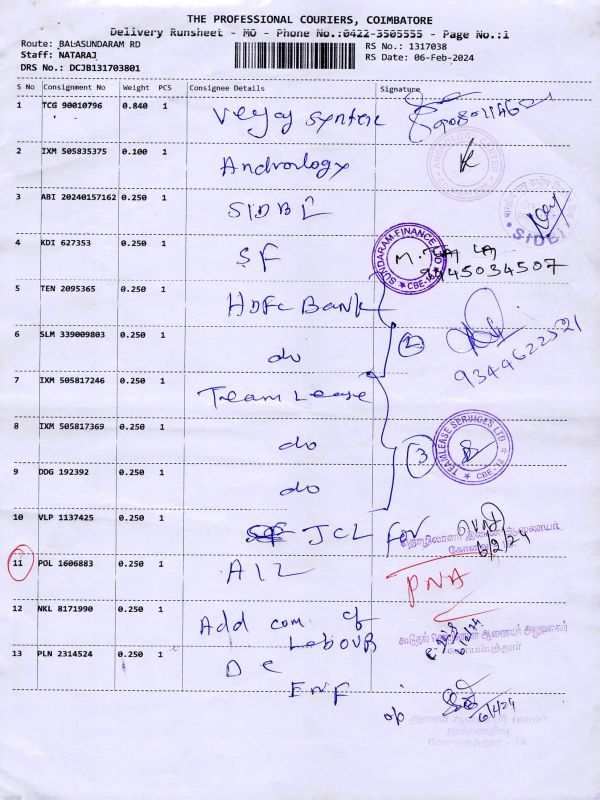 THE PROFESSIONAL COURIERS, COIMBATORE
Delivery Runsheet - MO - Phone No.:0422-3505555 - Page No.:1
Route: BALASUNDARAM RD
RS No.: 1317038
Staff: NATARAJ
RS Date: 06-Feb-2024
DRS No.: DCJB131703801
S No Consignment No Weight PCS Consignee Details Signature
1 TCG 90010796 0.840 1
2 IXM 505835375 0.100 1 Andrology
3 ABI 20240157162 0.250 1 SIDBI
SIDBI
4 KDI 627353 0.250 1 SF
SUNDARAM FINANCE
CBE-18
9445034507
5 TEN 2095365 0.250 1 HDFC Bank
6 SLM 339009803 0.250 1 do 2
9344622521
7 IXM 505817246 0.250 1 Team Lease
8 IXM 505817369 0.250 1 do
TEAMLEASE SERVICES LTD
CBE-18
9 DDG 192392 0.250 1 do 3
10 VLP 1137425 0.250 1 JCL For
6/2/24
11 POL 1606883 0.250 1 AIL PNA
12 NKL 8171990 0.250 1 Add com of
Labour
6/2/24
13 PLN 2314524 0.250 1 DC
ENF
o/o